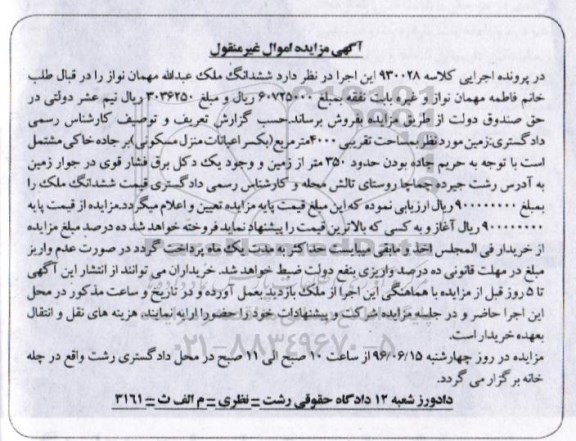 آگهی مزایده اموال غیرمنقول
در پرونده اجرایی کلاسه ۹۳۰۰۲۸ این اجرا در نظر دارد ششدانگ ملک عبدالله مهمان نواز را در قبال طلب
خانم فاطمه مهمان نواز و غیره بابت نفقه بمبلغ ۶۰۷۲۵۰۰ ریال و مبلغ ۳۰۳۶۲۵۰ ریال نیم عشر دولتی در
حق صندوق دولت از طریق مزایده بفروش برساند.حسب گزارش تعریف و توصیف کارشناس رسمی
دادگستری:زمین مورد نظر بمساحت تقریبی ۴۰۰۰مترمربع(بکسر اعیانات منزل مسکونی)بر جاده خاکی مشتمل
است با توجه به حریم جاده بودن حدود ۳۵۰ متر از زمین و وجود یک دکل برق فشار قوی در جوار زمین
به آدرس رشت جیرده جماجا روستای تالش محله و کارشناس رسمی دادگستری قیمت ششدانگ ملک را
بمبلغ ۹۰۰۰۰۰۰۰۰ ریال ارزیابی نموده که این مبلغ قیمت پایه مزایده تعیین و اعلام میگردد.مزایده از قیمت پایه
۹۰۰۰۰۰۰۰۰ ریال آغاز و به کسی که بالاترین قیمت را پیشنهاد نماید فروخته خواهد شد ده درصد مبلغ مزایده
از خریدار فی المجلس اخذ و مابقی میبایست حداکثر به مدت یک ماه پرداخت گردد در صورت عدم واریز
مبلغ در مهلت قانونی ده درصد واریزی بنفع دولت ضبط خواهد شد. خریداران می توانند از انتشار این آگهی
تا ۵ روز قبل از مزایده با هماهنگی این اجرا از ملک بازدید بعمل آورده و در تاریخ و ساعت مذکور در محل
این اجرا حاضر و در جلسه مزایده شرکت و پیشنهادات خود را حضورا ارایه نمایند. هزینه های نقل و انتقال
بعهده خریدار است.
مزایده در روز چهارشنبه ۹۶/۰۶/۱۵ از ساعت ۱۰ صبح الی ۱۱ صبح در محل دادگستری رشت واقع در چله
خانه برگزار می گردد.
دادورز شعبه ۱۲ دادگاه حقوقی رشت – نظری – م الف ث – ۳۱۶۱
۰۲۱-۸۸۳۴۹۶۷۰-۵